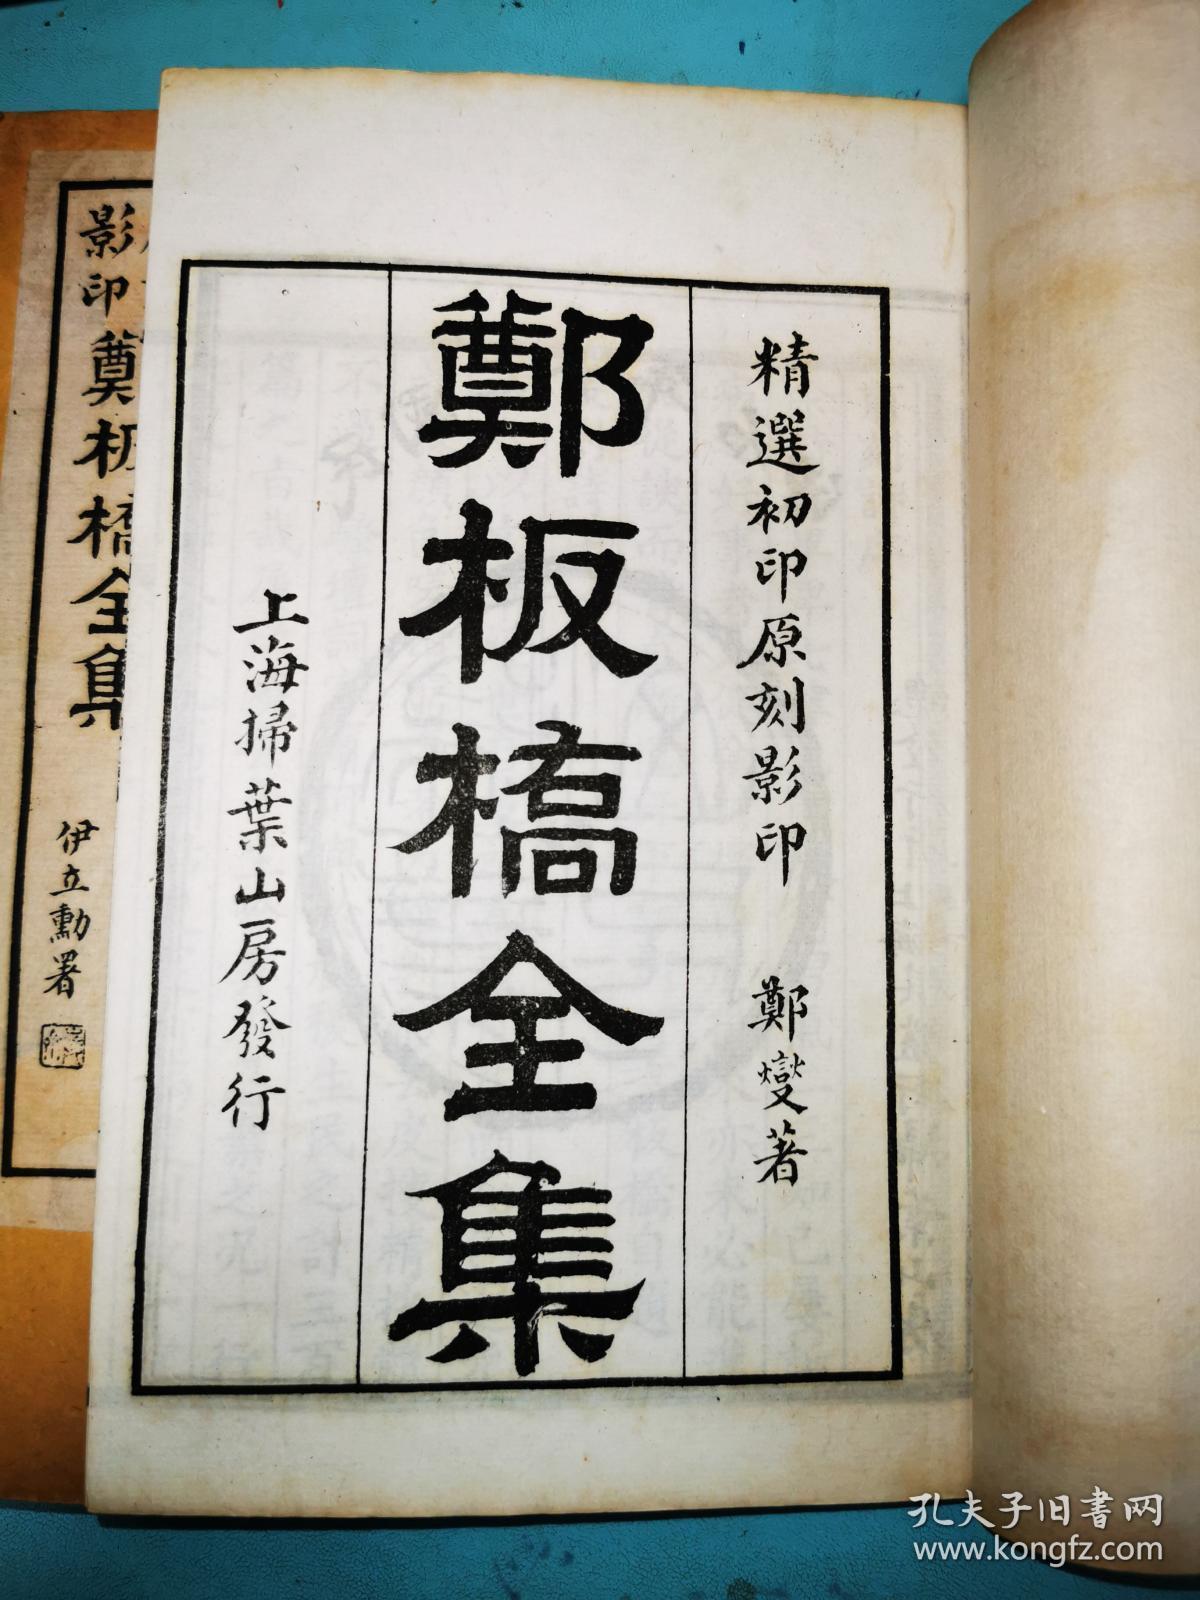 精選初印原刻影印 鄭燮著
鄭板橋全集
上海掃葉山房發行
影印鄭板橋全集
伊立勳署
孔夫子旧书网
www.kongfz.com